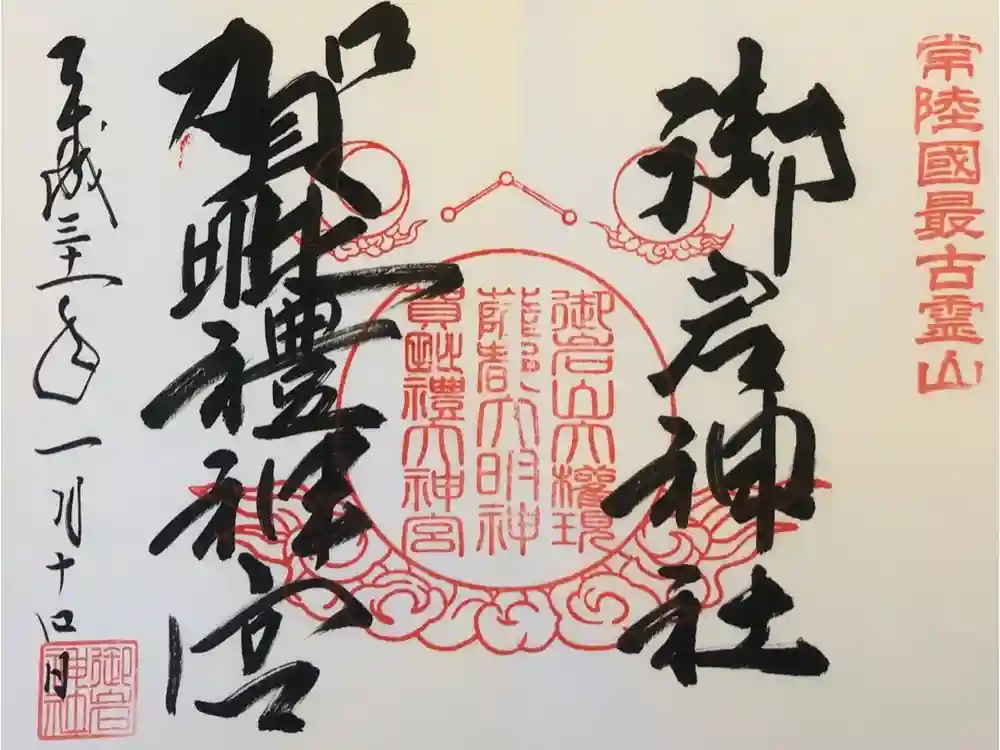 常陸國最古霊山
御岩神社
御岩山大權現
大明神
賀毗禮大神宮
賀毗禮神宮
平成三十一年一月十四日
御岩神社